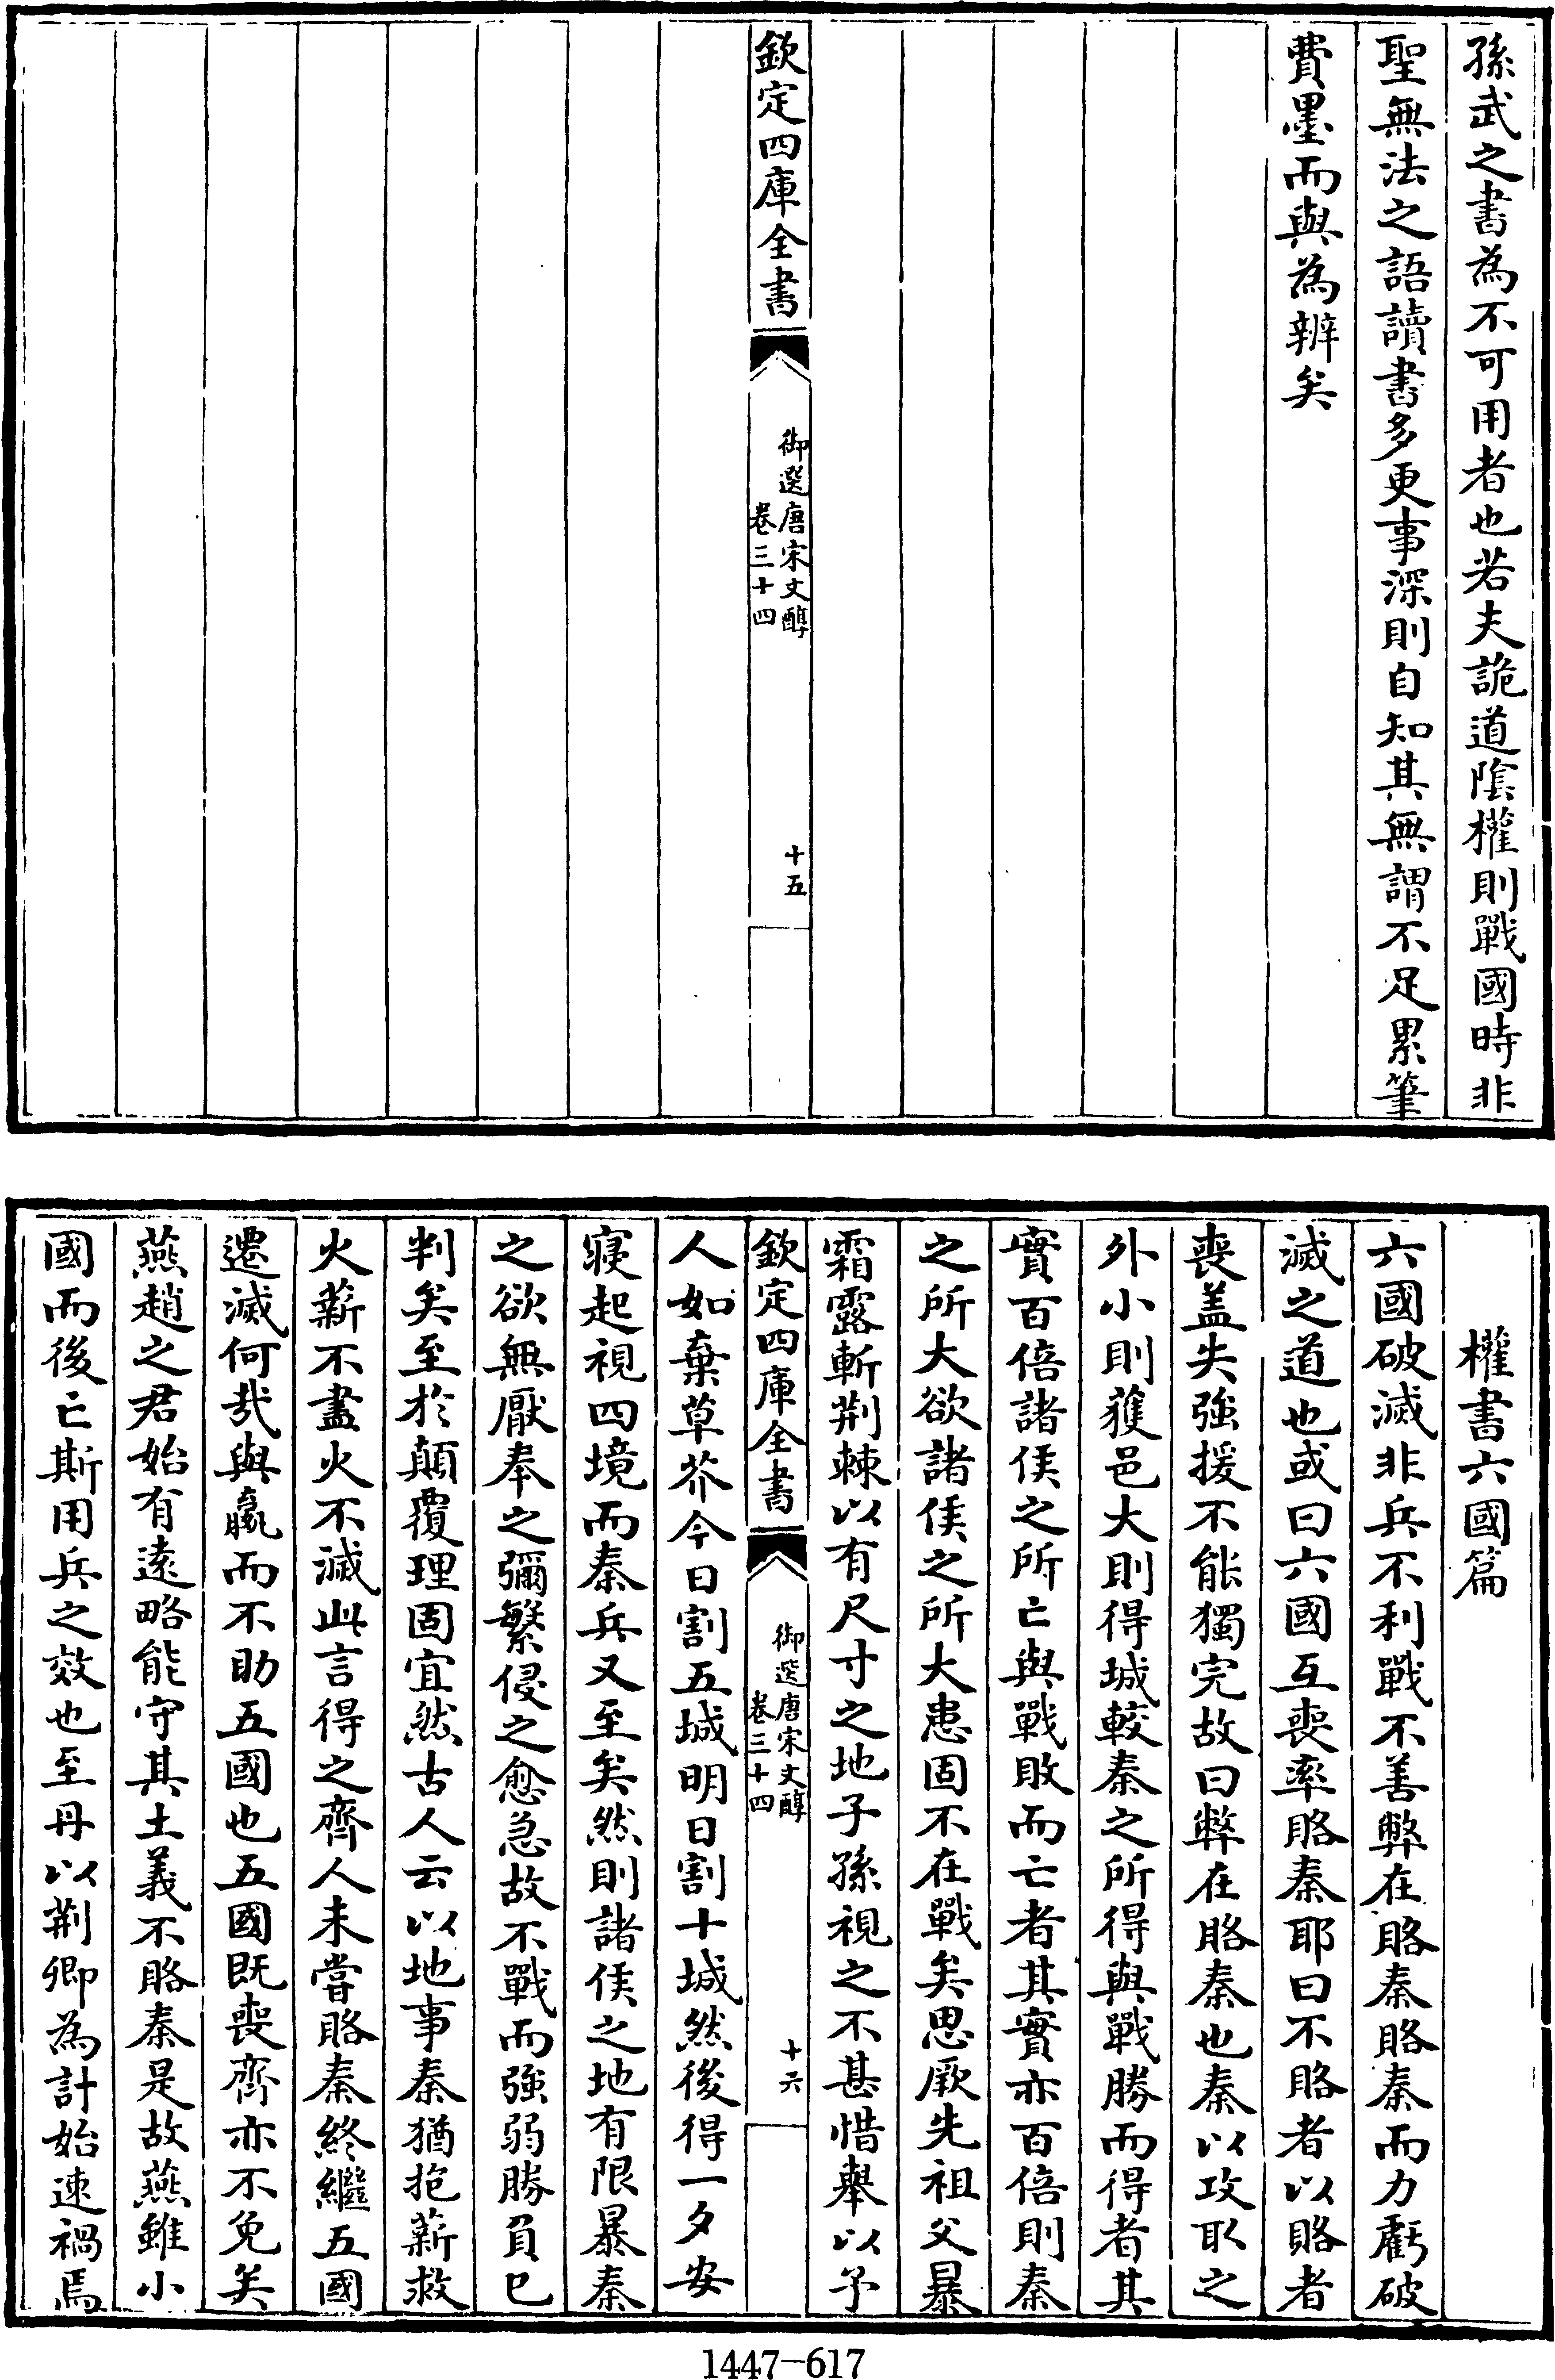 孫武之書為不可用者也若夫詭道陰權則戰國時非
聖無法之語讀書多更事深則自知其無謂不足累筆
費墨而與為辨矣
欽定四庫全書
御選唐宋文醇
卷三十四
十五
權書六國篇
六國破滅非兵不利戰不善弊在賂秦賂秦而力虧破
滅之道也或曰六國互喪率賂秦耶曰不賂者以賂者
喪盖失強援不能獨完故曰弊在賂秦也秦以攻取之
外小則獲邑大則得城較秦之所得與戰勝而得者其
實百倍諸侯之所亡與戰敗而亡者其實亦百倍則秦
之所大欲諸侯之所大患固不在戰矣思厥先祖父暴
霜露斬荆棘以有尺寸之地子孫視之不甚惜舉以予
欽定四庫全書
御選唐宋文醇
卷三十四
十六
人如棄草芥今日割五城明日割十城然後得一夕安
寢起視四境而秦兵又至矣然則諸侯之地有限暴秦
之欲無厭奉之彌繁侵之愈急故不戰而強弱勝負已
判矣至於顛覆理固宜然古人云以地事秦猶抱薪救
火薪不盡火不滅此言得之齊人未嘗賂秦終繼五國
遷滅何哉與嬴而不助五國也五國既喪齊亦不免矣
燕趙之君始有逺略能守其土義不賂秦是故燕雖小
國而後亡斯用兵之效也至丹以荆卿為計始速禍焉
1447-617